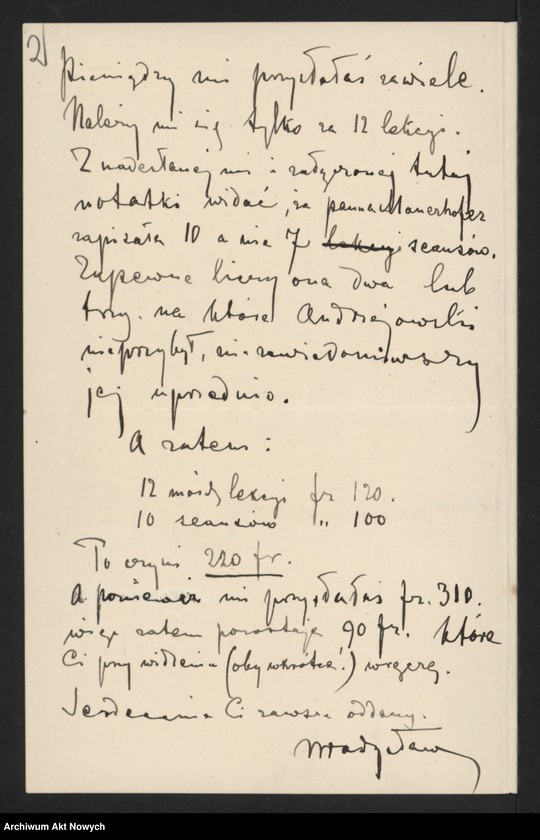 2)
Pieniędzy mi przysłałaś zawiele.
Należy mi się tylko za 12 lekcji.
Z nadesłanej mi i załączonej tutaj
notatki widać, że panna Mauerhofer
zapisała 10 a nie 7 lekcyj seansów.
Zapewne liczy ona dwa lub
trzy, na które Andrzejowski
nieprzybył, nie zawiadomiwszy
jej uprzednio.
A zatem:
12 lekcyj fr 120.
10 seansów " 100
To czyni 220 fr.
A ponieważ mi przysłałaś fr. 310.
więc zatem pozostaje 90 fr. które
Ci przy widzeniu (oby wkrótce!) wręczę.
Serdecznie Ci zawsze oddany.
Władysław
Archiwum Akt Nowych